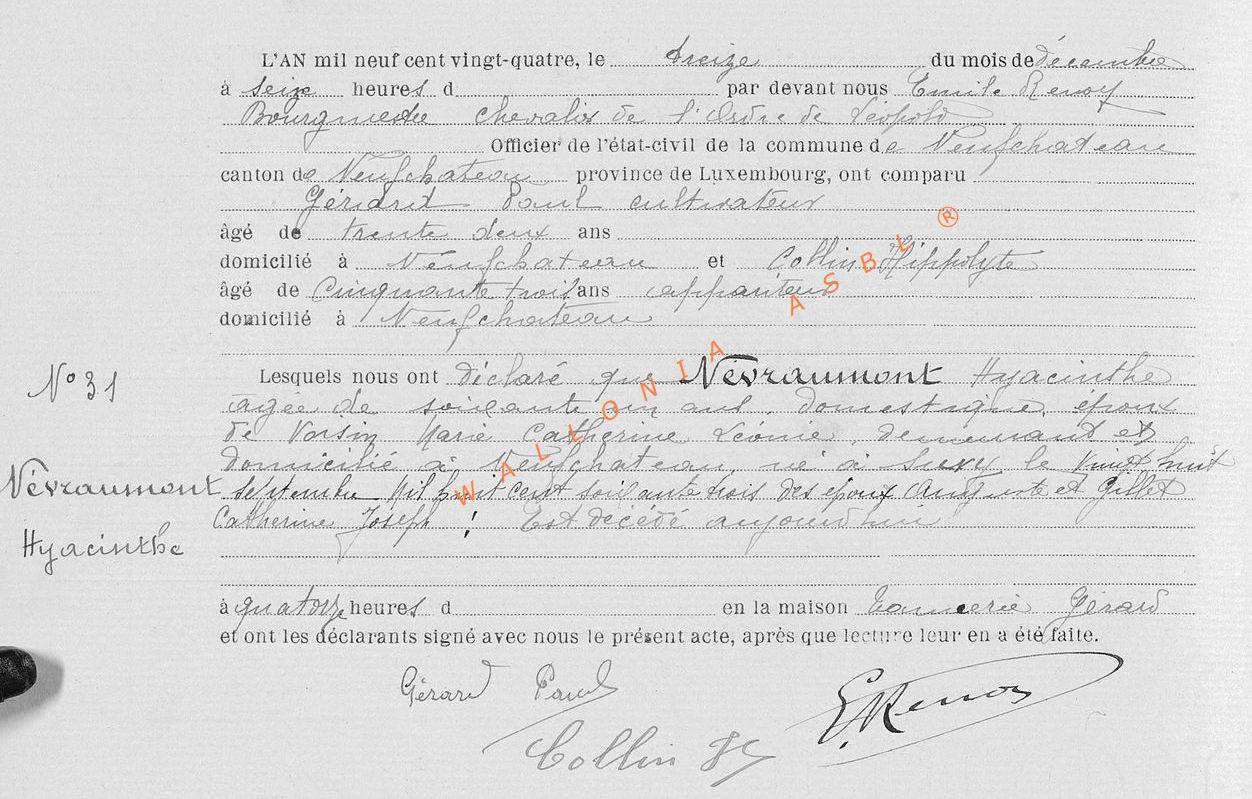 L'AN mil neuf cent vingt-quatre, le treize du mois de décembre
à seize heures d par devant nous Emile Renoy
Bourgmestre chevalier de l'Ordre de Léopold
Officier de l'état-civil de la commune de Neufchateau
canton de Neufchateau province de Luxembourg, ont comparu
Gérard Paul cultivateur
âgé de trente deux ans
domicilié à Neufchateau et Collin Hippolyte
âgé de Cinquante trois ans appariteur
domicilié à Neufchateau
N° 31
Lesquels nous ont déclaré que Névraumont Hyacinthe
agée de soixante un ans, domestique, époux
de Marie Catherine Léonie, demeurant et
domicilié à Neufchateau, né à Suxy le vingt huit
Névraumont
septembre Mil huit cent soixante trois des époux Auguste et Gillet
Catherine Joseph ! Est décédé aujourd'hui
Hyacinthe
à quatorze heures d en la maison Tannerie Gérard
et ont les déclarants signé avec nous le présent acte, après que lecture leur en a été faite.
Gérard Paul
E. Renoy
Collin
WALLONIA ASBL ®